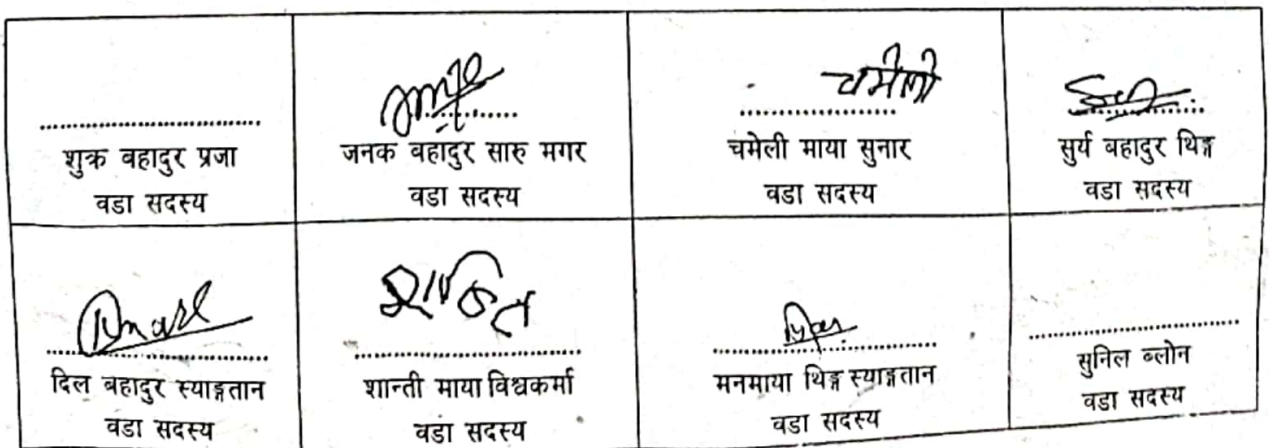 शुक्र बहादुर प्रजा
वडा सदस्य
जनक बहादुर सारु मगर
वडा सदस्य
चमेली
चमेली माया सुनार
वडा सदस्य
सुर्य बहादुर थिङ्ग
वडा सदस्य
दिल बहादुर स्याङ्गतान
वडा सदस्य
शान्ति
शान्ती माया विश्वकर्मा
वडा सदस्य
मनमाया थिङ्ग स्याङ्गतान
वडा सदस्य
सुनिल ब्लोन
वडा सदस्य